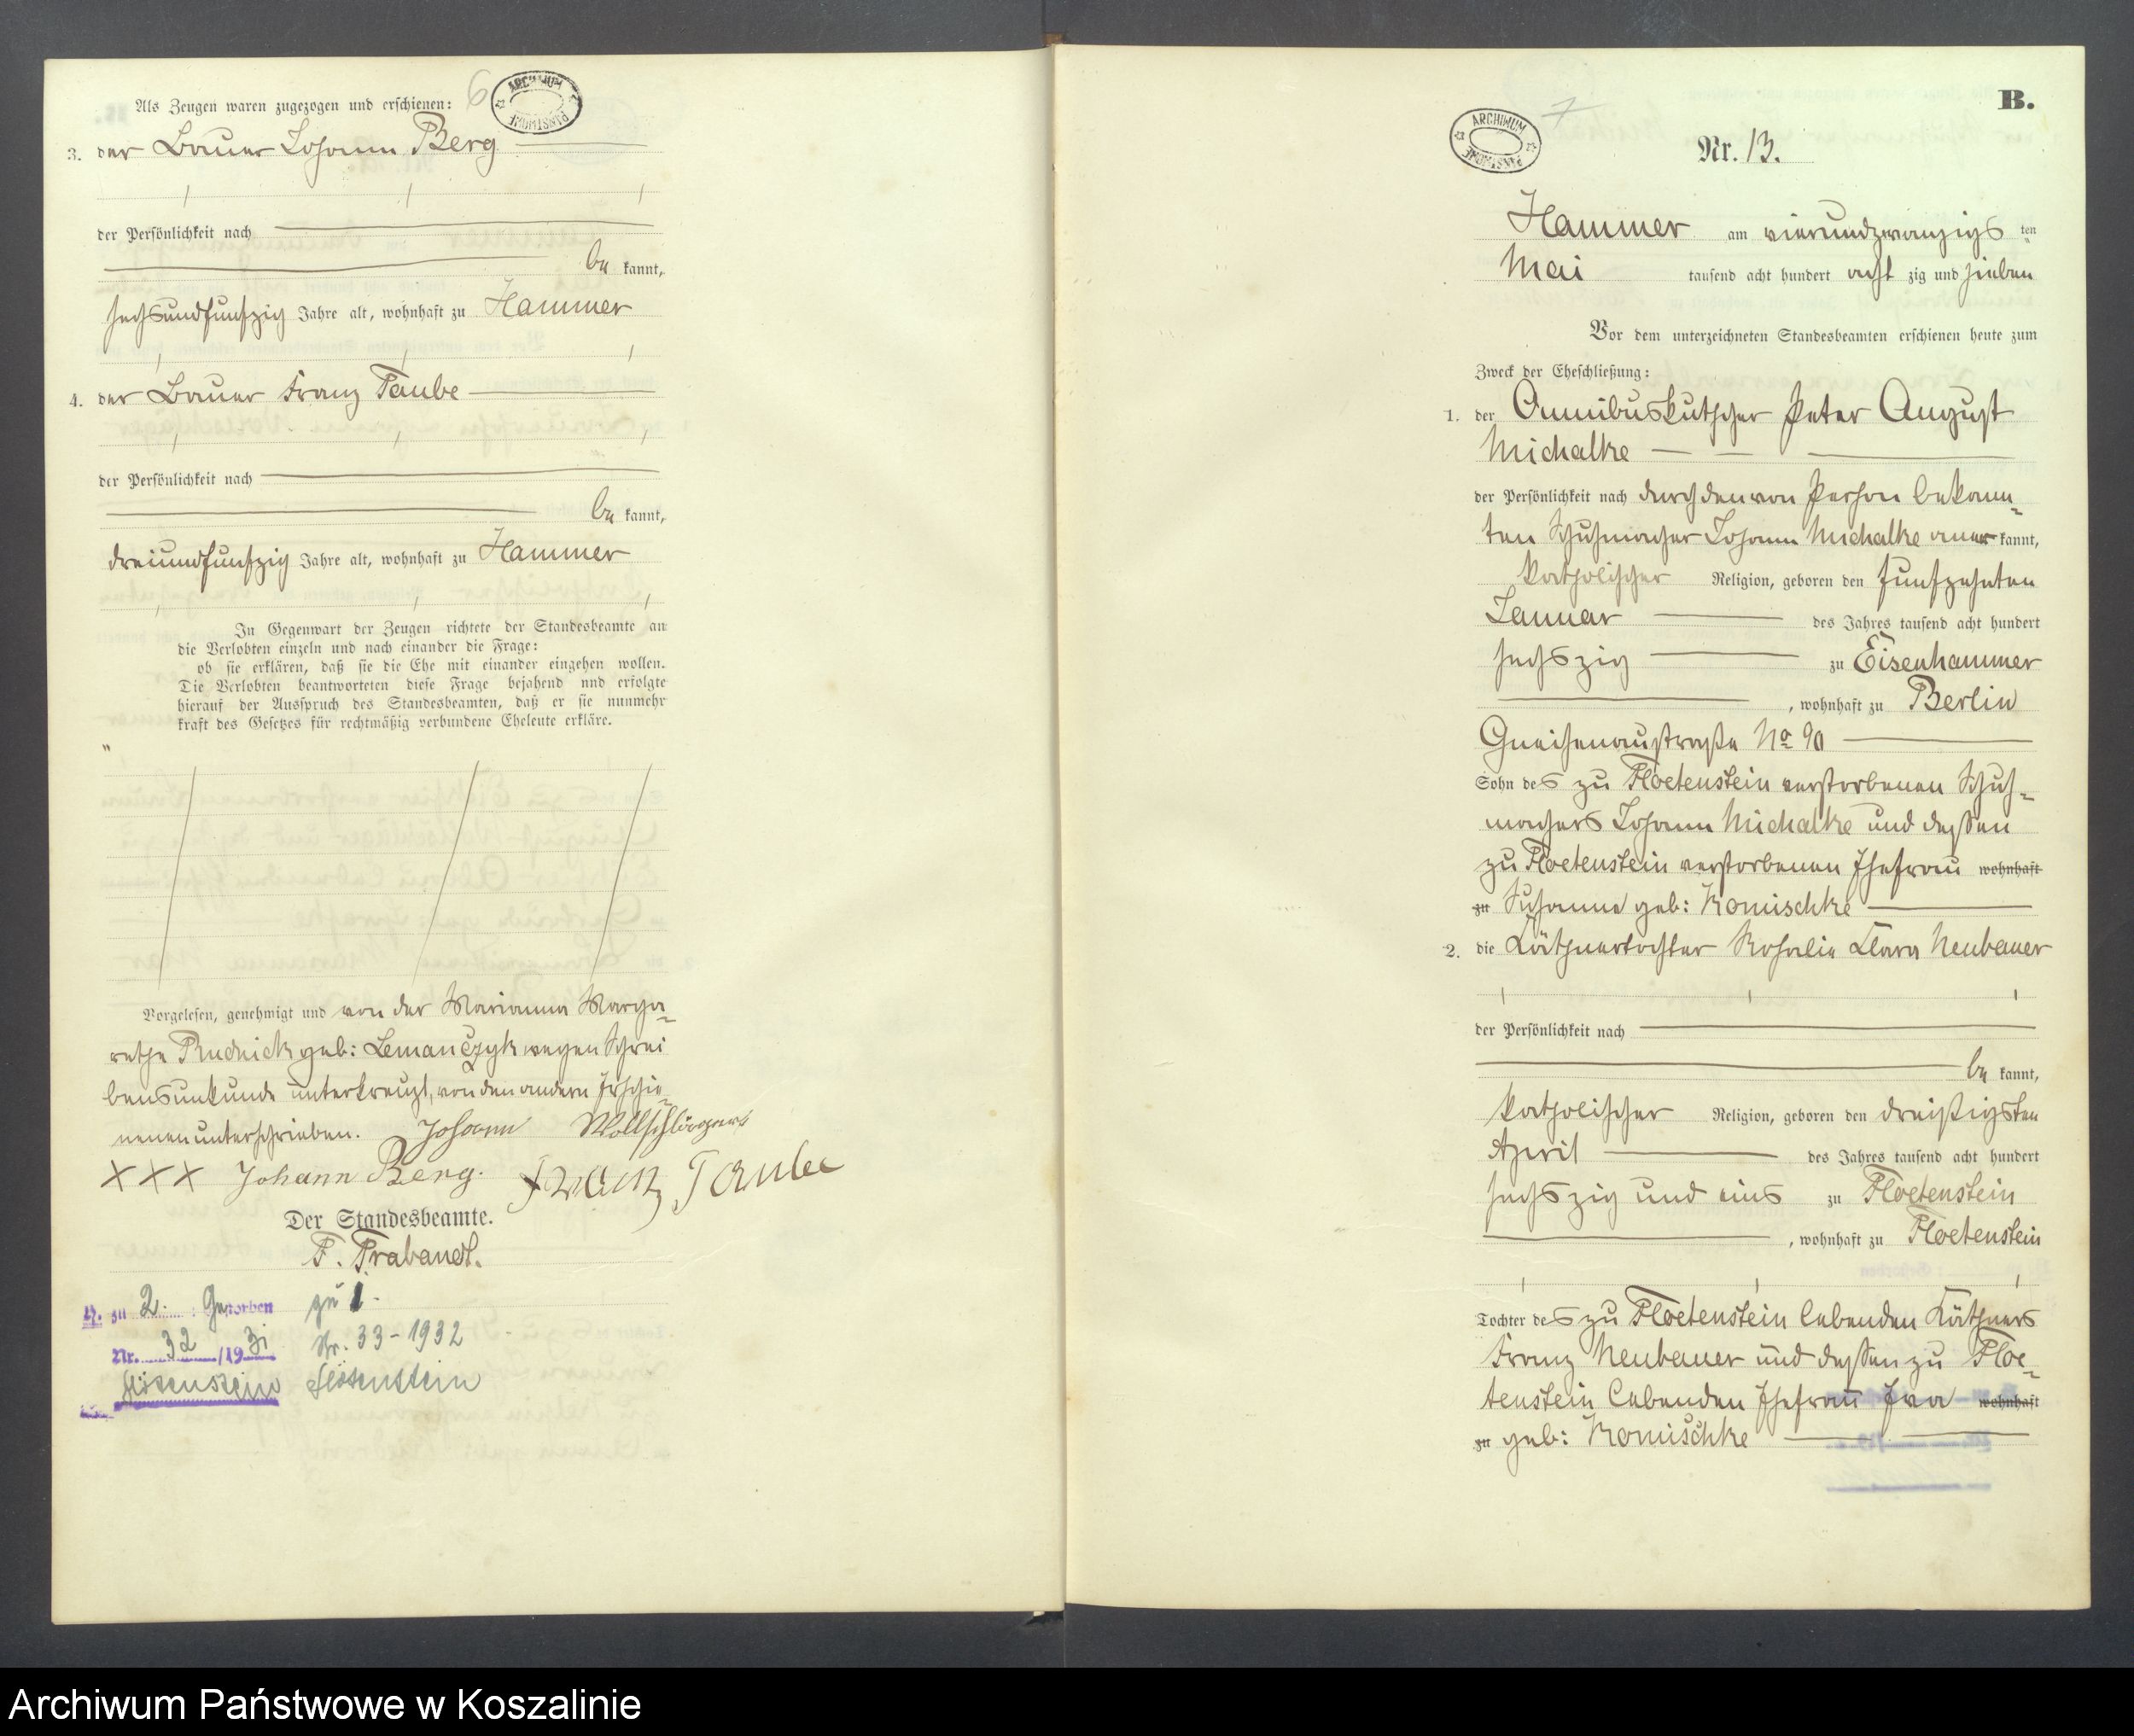 6
ARCHIWUM PAŃSTWOWE
Als Zeugen waren zugezogen und erschienen:
3. der Bauer Johann Berg
der Persönlichkeit nach
be kannt,
sechsundfunfzig Jahre alt, wohnhaft zu Hammer
4. der Bauer Franz Taube
der Persönlichkeit nach
be kannt,
dreiundfunfzig Jahre alt, wohnhaft zu Hammer
In Gegenwart der Zeugen richtete der Standesbeamte an
die Verlobten einzeln und nach einander die Frage:
ob sie erklären, daß sie die Ehe mit einander eingehen wollen.
Die Verlobten beantworteten diese Frage bejahend und erfolgte
hierauf der Ausspruch des Standesbeamten, daß er sie nunmehr
kraft des Gesetzes für rechtmäßig verbundene Eheleute erkläre.
Vorgelesen, genehmigt und von der Marianna Marga-
rethe Rudnick geb: Lemanczyk wegen Schrei
bensunkunde unterkreuzt, von den andern Erschie-
nenen unterschrieben. Johann Wollschlaeger
XXX Johann Berg. Franz Taube
Der Standesbeamte.
F. Trabandt.
H. zu 2. : Gestorben zu 1.
Nr. 32/1931 Nr. 33-1932
Flötenstein Flötenstein
B.
7
ARCHIWUM PAŃSTWOWE
Nr. 13.
Hammer am vierundzwanzigs ten
Mai tausend acht hundert acht zig und sieben
Vor dem unterzeichneten Standesbeamten erschienen heute zum
Zweck der Eheschließung:
1. der Omnibuskutscher Peter August
Michalke
der Persönlichkeit nach durch den von Person bekann-
ten Schuhmacher Johann Michalke aner kannt,
katholischer Religion, geboren den funfzehnten
Januar des Jahres tausend acht hundert
sechszig zu Eisenhammer
, wohnhaft zu Berlin
Gneisenaustraße No 90
Sohn des zu Floetenstein verstorbenen Schuh-
machers Johann Michalke und dessen
zu Floetenstein verstorbenen Ehefrau wohnhaft
zu Susanna geb: Komischke
2. die Käthnertochter Rosalie Clara Neubauer
der Persönlichkeit nach
be kannt,
katholischer Religion, geboren den dreißigsten
April des Jahres tausend acht hundert
sechszig und eins zu Floetenstein
, wohnhaft zu Floetenstein
Tochter des zu Floetenstein lebenden Käthners
Franz Neubauer und dessen zu Floe-
tenstein lebenden Ehefrau Eva wohnhaft
zu geb: Komischke
Archiwum Państwowe w Koszalinie